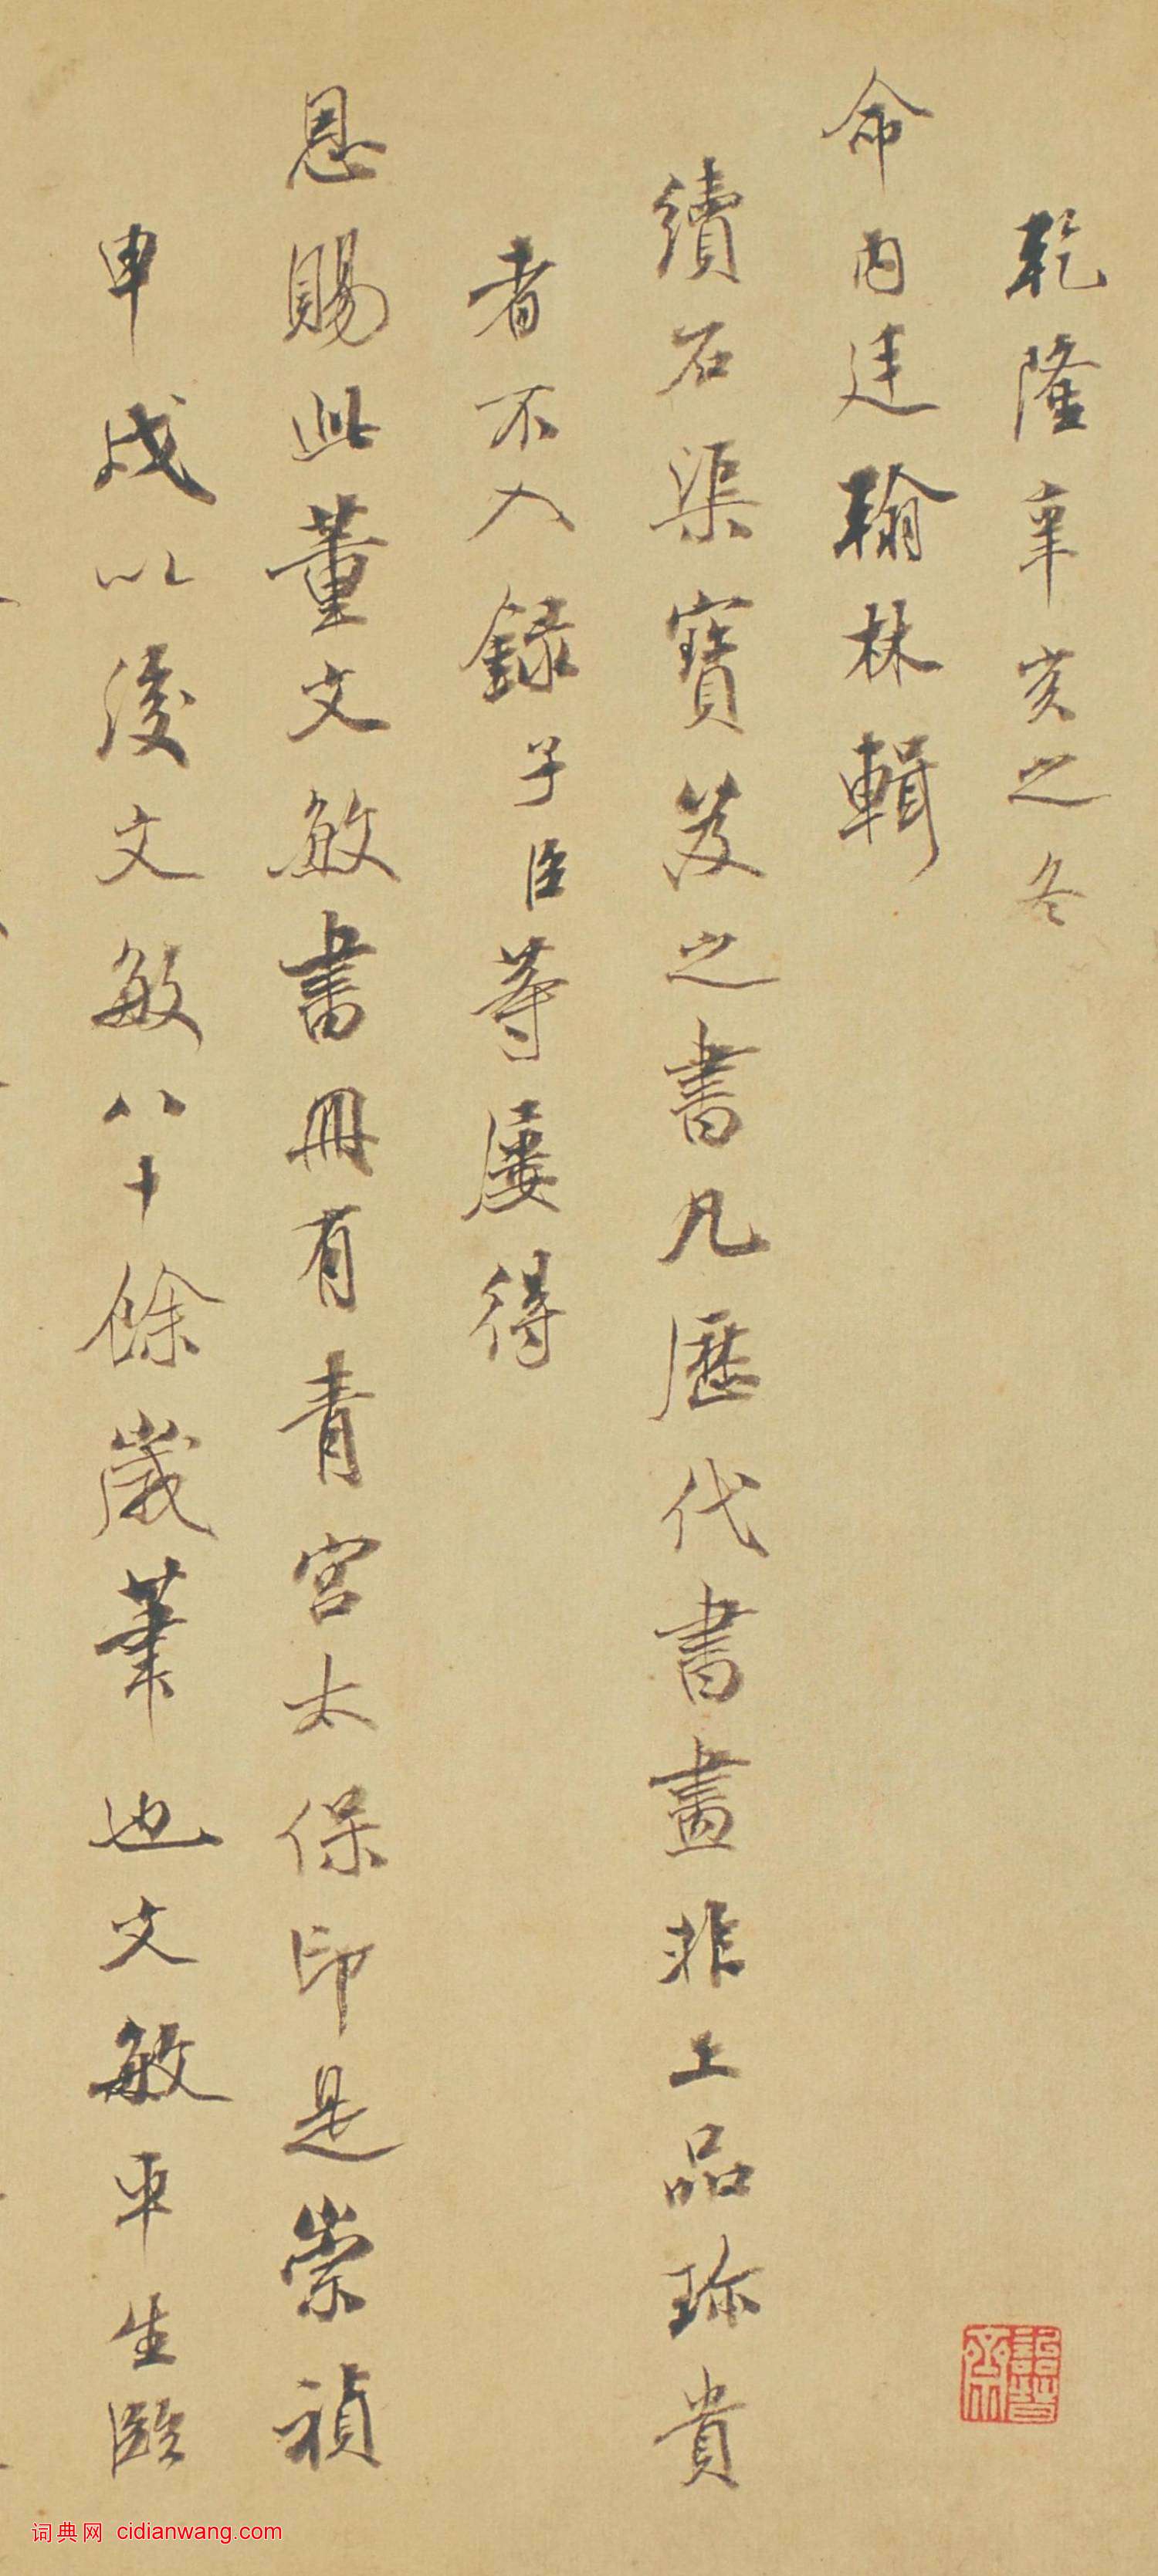 乾隆辛亥之冬
命内廷翰林輯
續石渠寶笈之書凡歷代書畫非上品珍貴
者不入錄子臣等屢得
恩賜此董文敏書冊有青宮太保印是崇禎
甲戌以後文敏八十餘歲筆也文敏平生臨
詒晉齋
词典网 cidianwang.com